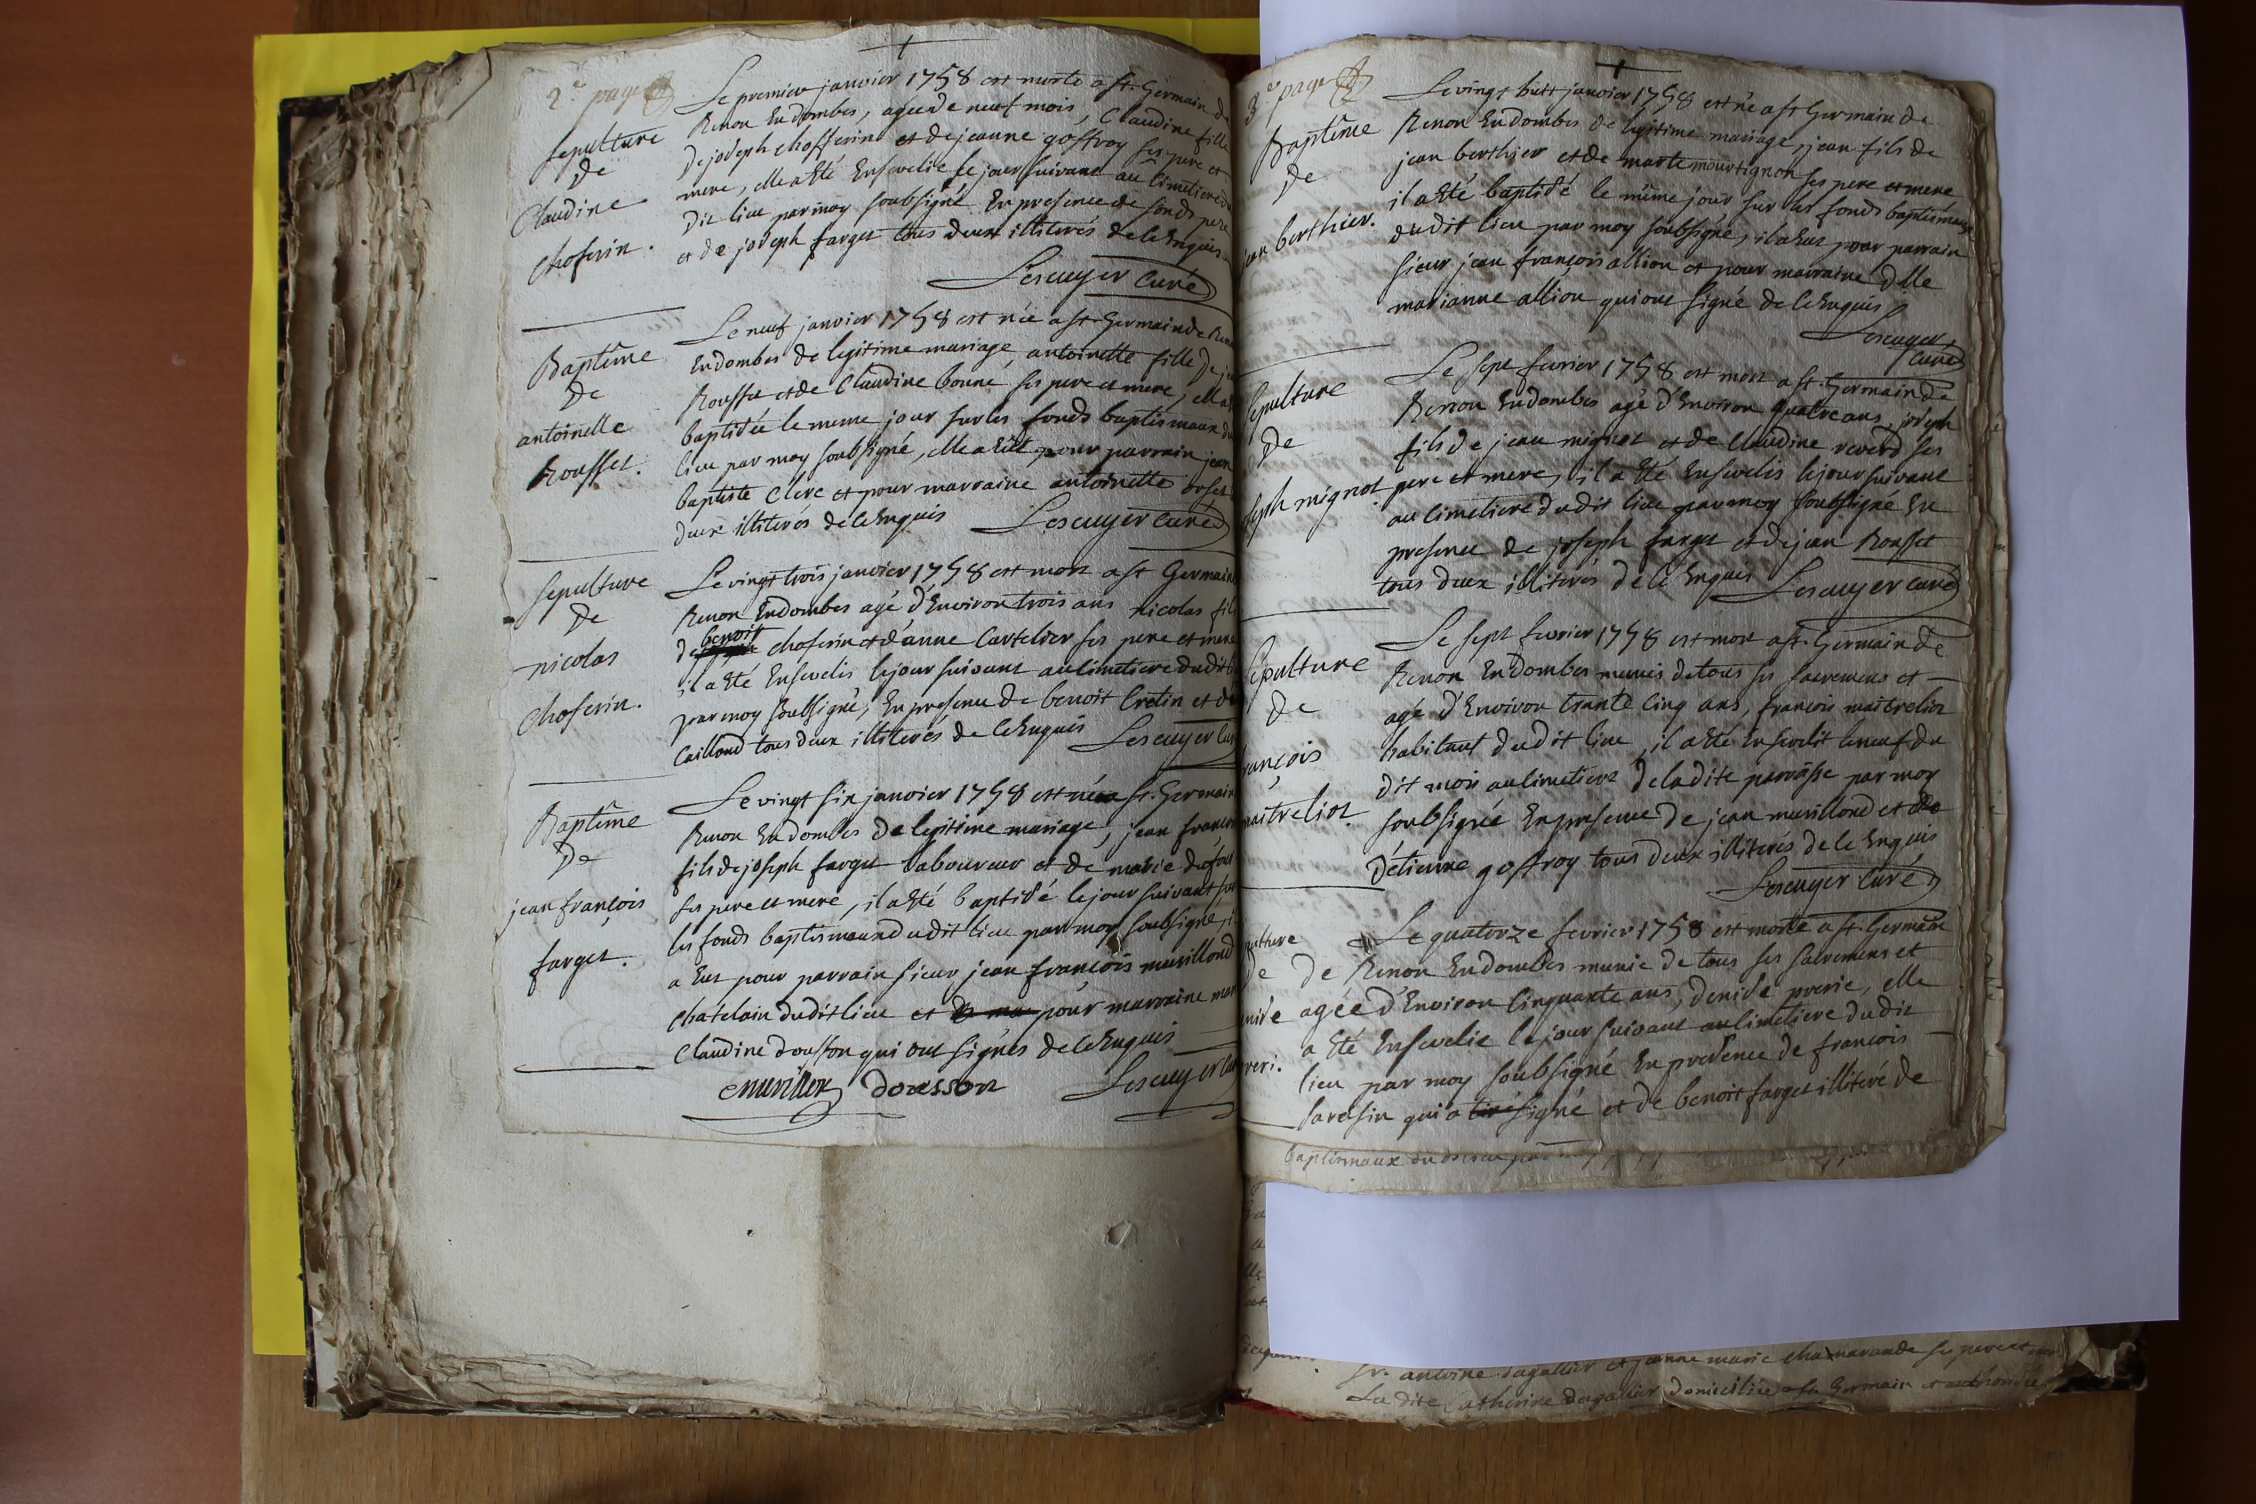 2.e page
Sepulture
De
Claudine
Choferin.
Le premier janvier 1758 est morte a st. Germain de
Renon En dombes, agée de neuf mois, Claudine fille
De joseph chofferin et de jeanne goffroy ses pere et
mere, elle a Eté Ensevelie le jour suivant au Cimetiere du
Dit lieu par moy soubsigné En presence de sonds pere
et de joseph farget tous deux illiterés de ce Enquis.
Lescuyer Curé
Baptême
De
antoinette
Rousset.
Le neuf janvier 1758 est née a st. Germain de Renon
En dombes de legitime mariage, antoinette fille De
Rousset et de Claudine bonné ses pere et mere, elle a
baptisée le meme jour sur les fonds baptismaux du
lieu par moy soubsigné, elle a Eût pour parrain jean
baptiste Clerc et pour marraine antoinette
deux illiterés de ce Enquis Lescuyer Curé
Sepulture
De
nicolas
Choferin.
Le vingt trois janvier 1758 est mort a st Germain
Renon En dombes agé d'Environ trois ans nicolas fils
de benoit choferin et d'anne Cartelier ses pere et mere
il a Eté Ensevelis le jour suivant au Cimetiere dudit
par moy soubsigné, En presence de benoit Cretin et de
Caillond tous deux illiterés de ce Enquis Lescuyer Curé
Baptême
De
jean françois
farget.
Le vingt six janvier 1758 est né a st. Germain
Renon En dombes de legitime mariage, jean françois
fils de joseph farget laboureur et de marie
ses pere et mere, il a Eté baptisé le jour suivant sur
les fonds baptismaux dudit lieu par moy soubsigné, il
a Eut pour parrain sieur jean françois murillond
chatelain dudit lieu et pour marraine
Claudine dousson qui ont signés de ce Enquis
dousson Lescuyer Curé
3.e page
Baptême
De
jean berthier.
Le vingt huit janvier 1758 est né a st Germain de
Renon En dombes de legitime mariage, jean fils de
jean berthier et de marte mourtignon ses pere et mere
il a Eté baptisé le même jour sur les fonds baptismaux
dudit lieu par moy soubsigné, il a Eut pour parrain
sieur jean françois allion et pour marraine dlle
marianne allion qui ont signé de ce Enquis
Lescuyer
Curé
Sepulture
De
joseph mignot
Le sept fevrier 1758 est mort a st. Germain de
Renon En dombes agé d'Environ quatre ans, joseph
fils de jean mignot et de Claudine reverd ses
pere et mere, il a Eté Ensevelis le jour suivant
au Cimetiere dudit lieu par moy soubsigné En
presence de joseph farget et de jean Rousset
tous deux illiterés de ce Enquis Lescuyer Curé
Sepulture
De
françois
maîtrelior.
Le sept fevrier 1758 est mort a st. Germain de
Renon En dombes munis de tous ses sacremens et
agé d'Environ trante Cinq ans, françois maîtrelior
habitant dudit lieu, il a Eté Ensevelit le neuf du
dit mois au Cimetiere de la dite paroisse par moy
soubsigné En presence de jean murillond et
d'etienne goffroy tous deux illiterés de ce Enquis
Lescuyer Curé
Sepulture
De
Denise
Le quatorze fevrier 1758 est morte a st. Germain
de Renon En dombes munie de tous ses sacremens et
agée d'Environ Cinquante ans, Denise, elle
a Eté Ensevelie le jour suivant au Cimetiere dudit
lieu par moy soubsigné En presence de françois
sarasin qui a signé et de benoit farget illiteré de
baptismaux du
sr. antoine dagallier et jeanne marie ses pere et
Ladite Catherine dagallier domiciliée a st Germain